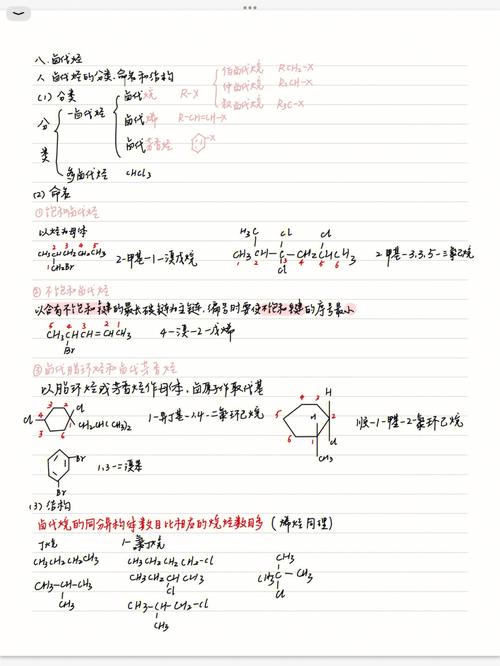 八.卤代烃
1. 卤代烃的分类、命名和结构
(1) 分类
伯卤代烷 RCH₂-X
仲卤代烷 R₂CH-X
叔卤代烷 R₃C-X
分类
一卤代烃
卤代烷 R-X
卤代烯 R-CH=CH-X
卤代芳香烃 X
多卤代烃 CHCl₃
(2) 命名
①饱和卤代烃
以烃为母体
1 2 3 4 5
CH₃CHCH₂CH₂CH₃
CH₂Br
2-甲基-1-溴戊烷
H₃C Cl Cl
CH₃CH-C-CH₂CHCH₃
1 2 3 4 5 6
Cl
2-甲基-3,3,5-三氯己烷
② 不饱和卤代烃
以含有不饱和键的最长碳链为主链,编号时要使不饱和键的序号最小
5 4 3 2 1
CH₃CHCH=CHCH₃
Br
4-溴-2-戊烯
③ 卤代脂环烃和卤代芳香烃
以脂环烃或芳香烃作母体,卤原子作取代基
Cl Cl CH₂CH(CH₃)₂
1-异丁基-1,4-二氯环己烷
H Cl H CH₃
顺-1-甲基-2-氯环己烷
Br Br
1,3-二溴苯
(3) 结构
卤代烷的同分异构体数目比相应的烷烃数目多 (烯烃同理)
丁烷 1-氯丁烷
CH₃CH₂CH₂CH₃ CH₃CH₂CH₂CH₂-Cl
CH₃CH₂CHCH₃
Cl
CH₃-CH-CH₃
CH₃
CH₃-CH-CH₂-Cl
CH₃
CH₃
CH₃-C-CH₃
Cl